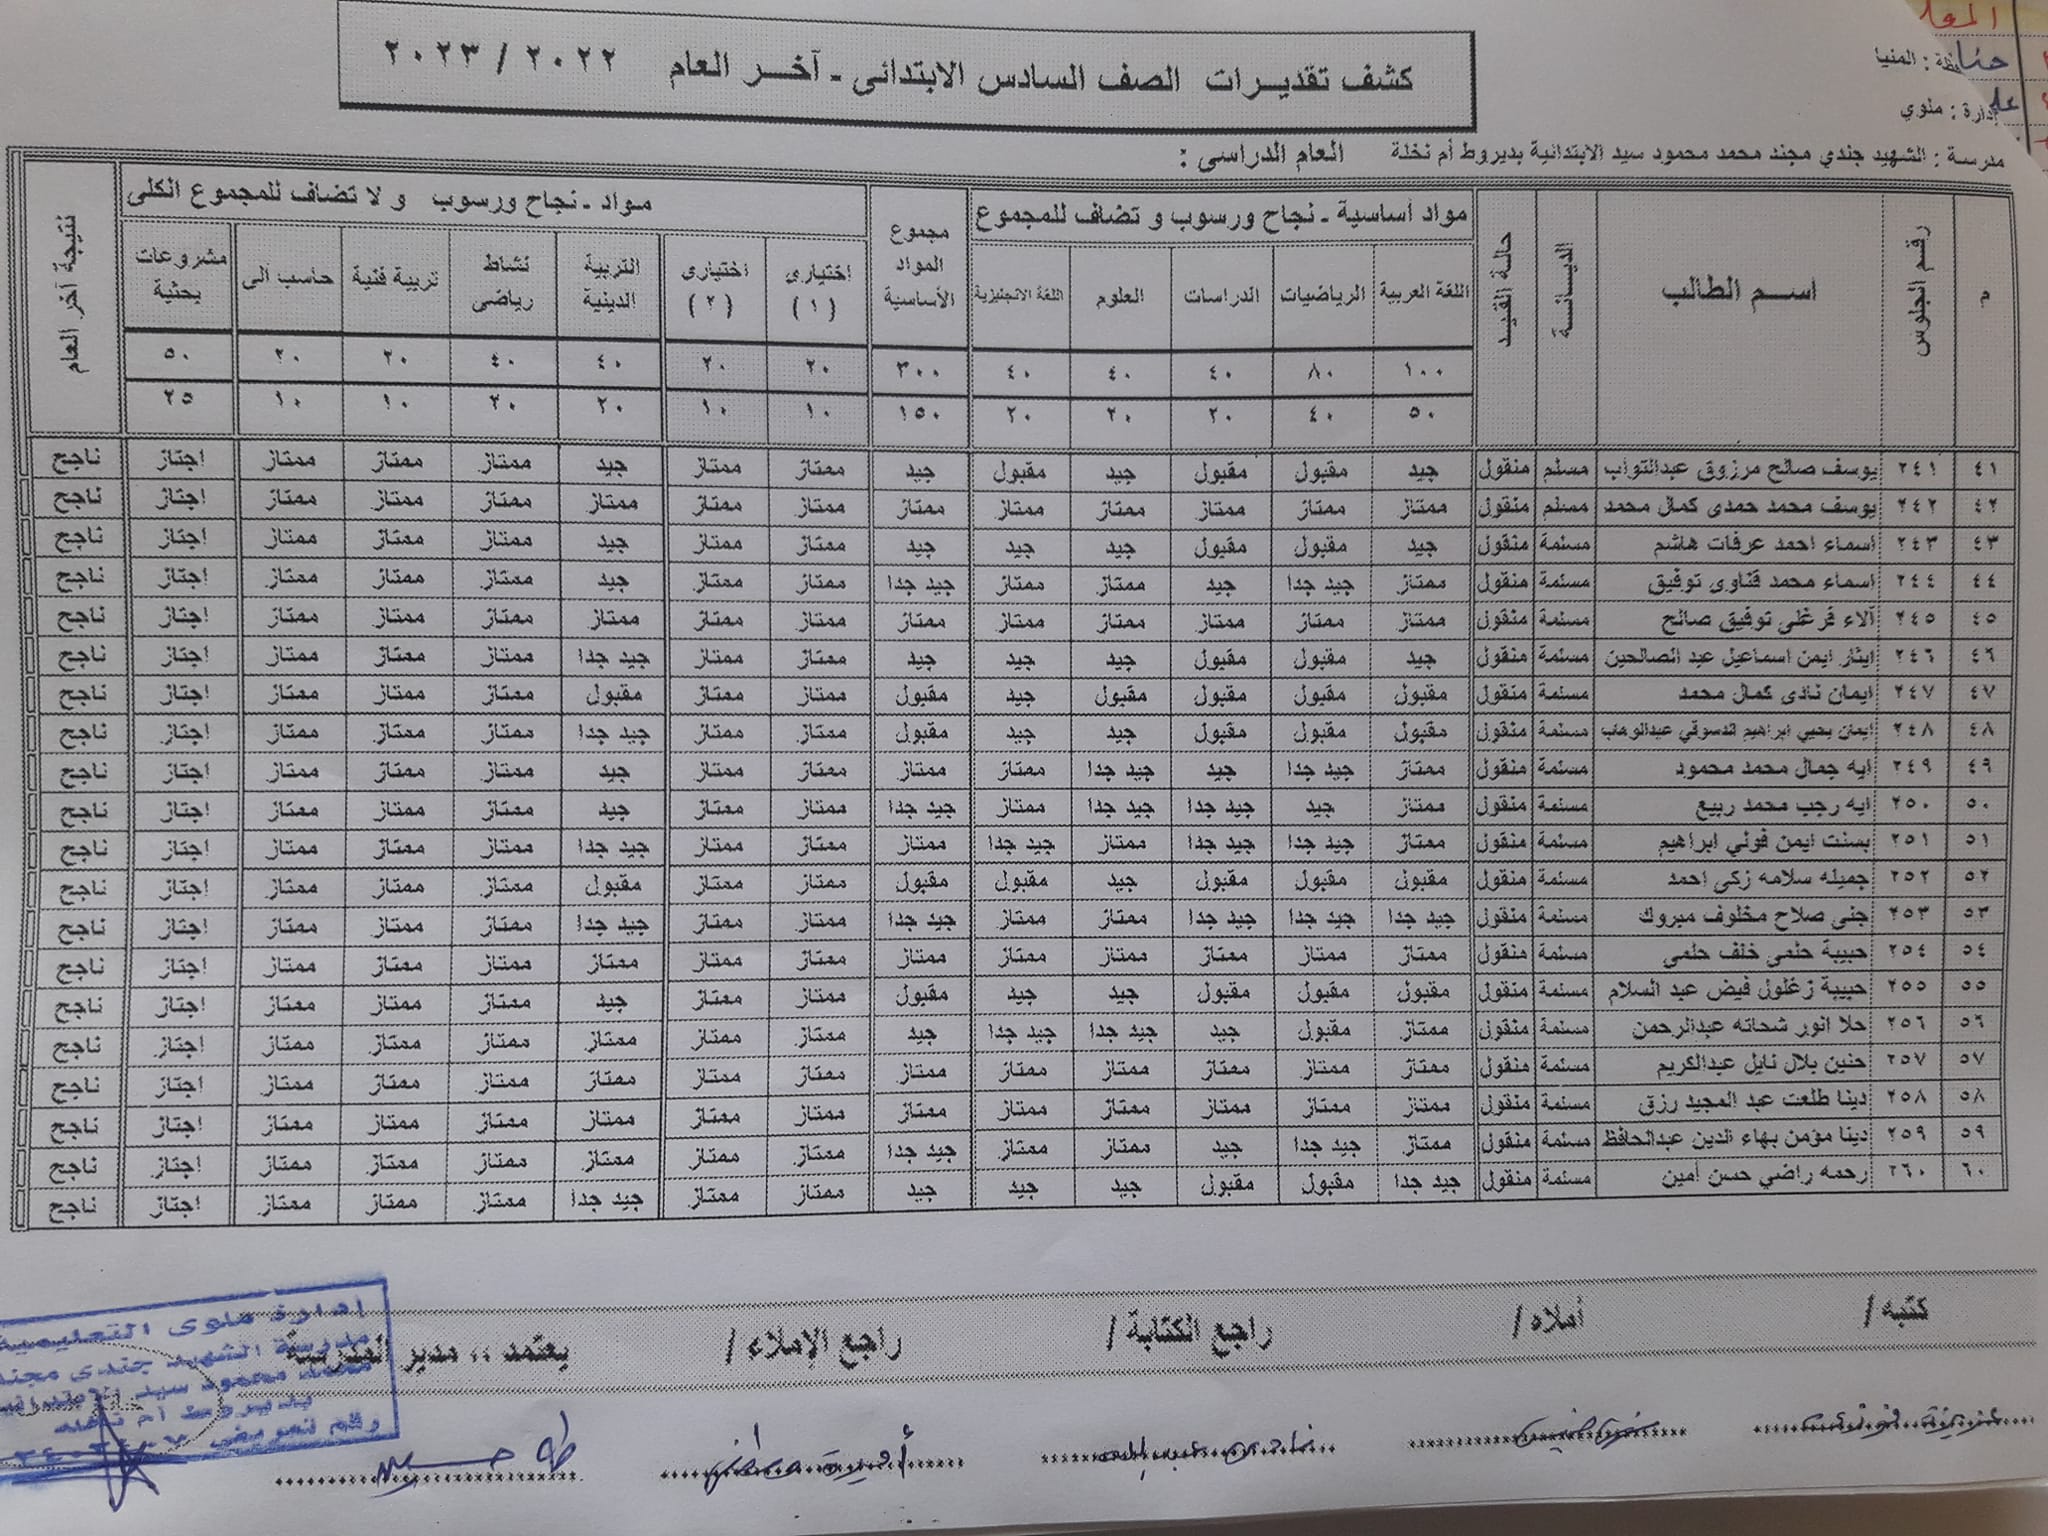 كشف تقديرات الصف السادس الابتدائى - آخر العام ٢٠٢٢ / ٢٠٢٣
المعل
حنا
ظة : المنيا
عل
إدارة : ملوي
مدرسة : الشهيد جندي مجند محمد محمود سيد الابتدائية بديروط أم نخلة العام الدراسى :
م رقم الجلوس اسم الطالب الديانة حالة القيد مواد أساسية - نجاح ورسوب و تضاف للمجموع مجموع المواد الأساسية مواد - نجاح ورسوب و لا تضاف للمجموع الكلى نتيجة آخر العام
اللغة العربية الرياضيات الدراسات العلوم اللغة الانجليزية اختيارى (١) اختيارى (٢) التربية الدينية نشاط رياضى تربية فنية حاسب آلى مشروعات بحثية
١٠٠ ٨٠ ٤٠ ٤٠ ٤٠ ٣٠٠ ٢٠ ٢٠ ٤٠ ٤٠ ٢٠ ٢٠ ٥٠
٥٠ ٤٠ ٢٠ ٢٠ ٢٠ ١٥٠ ١٠ ١٠ ٢٠ ٢٠ ١٠ ١٠ ٢٥
٤١ ٢٤١ يوسف صالح مرزوق عبدالتواب مسلم منقول جيد مقبول مقبول جيد مقبول جيد ممتاز ممتاز جيد ممتاز ممتاز ممتاز اجتاز ناجح
٤٢ ٢٤٢ يوسف محمد حمدى كمال محمد مسلم منقول ممتاز ممتاز ممتاز ممتاز ممتاز ممتاز ممتاز ممتاز ممتاز ممتاز ممتاز ممتاز اجتاز ناجح
٤٣ ٢٤٣ اسماء احمد عرفات هاشم مسلمة منقول جيد مقبول مقبول جيد جيد جيد ممتاز ممتاز جيد ممتاز ممتاز ممتاز اجتاز ناجح
٤٤ ٢٤٤ اسماء محمد قناوى توفيق مسلمة منقول ممتاز جيد جدا جيد ممتاز ممتاز جيد جدا ممتاز ممتاز جيد ممتاز ممتاز ممتاز اجتاز ناجح
٤٥ ٢٤٥ آلاء فرغلى توفيق صالح مسلمة منقول ممتاز ممتاز ممتاز ممتاز ممتاز ممتاز ممتاز ممتاز ممتاز ممتاز ممتاز ممتاز اجتاز ناجح
٤٦ ٢٤٦ ايثار ايمن اسماعيل عبد الصالحين مسلمة منقول جيد مقبول مقبول جيد جيد جيد ممتاز ممتاز جيد جدا ممتاز ممتاز ممتاز اجتاز ناجح
٤٧ ٢٤٧ ايمان نادى كمال محمد مسلمة منقول مقبول مقبول مقبول مقبول جيد مقبول ممتاز ممتاز مقبول ممتاز ممتاز ممتاز اجتاز ناجح
٤٨ ٢٤٨ ايمان يحيي ابراهيم الدسوقي عبدالوهاب مسلمة منقول مقبول مقبول مقبول جيد جيد مقبول ممتاز ممتاز جيد جدا ممتاز ممتاز ممتاز اجتاز ناجح
٤٩ ٢٤٩ ايه جمال محمد محمود مسلمة منقول ممتاز جيد جدا جيد جيد جدا ممتاز ممتاز ممتاز ممتاز جيد ممتاز ممتاز ممتاز اجتاز ناجح
٥٠ ٢٥٠ ايه رجب محمد ربيع مسلمة منقول ممتاز جيد جيد جدا جيد جدا ممتاز جيد جدا ممتاز ممتاز جيد ممتاز ممتاز ممتاز اجتاز ناجح
٥١ ٢٥١ بسنت ايمن فولي ابراهيم مسلمة منقول ممتاز جيد جدا جيد جدا ممتاز جيد جدا ممتاز ممتاز ممتاز جيد جدا ممتاز ممتاز ممتاز اجتاز ناجح
٥٢ ٢٥٢ جميله سلامه زكى احمد مسلمة منقول مقبول مقبول مقبول جيد مقبول مقبول ممتاز ممتاز مقبول ممتاز ممتاز ممتاز اجتاز ناجح
٥٣ ٢٥٣ جنى صلاح مخلوف مبروك مسلمة منقول جيد جدا جيد جدا جيد جدا ممتاز ممتاز جيد جدا ممتاز ممتاز جيد جدا ممتاز ممتاز ممتاز اجتاز ناجح
٥٤ ٢٥٤ حبيبة حلمى خلف حلمى مسلمة منقول ممتاز ممتاز ممتاز ممتاز ممتاز ممتاز ممتاز ممتاز ممتاز ممتاز ممتاز ممتاز اجتاز ناجح
٥٥ ٢٥٥ حبيبة زغلول فيض عبد السلام مسلمة منقول مقبول مقبول مقبول جيد جيد مقبول ممتاز ممتاز جيد ممتاز ممتاز ممتاز اجتاز ناجح
٥٦ ٢٥٦ حلا انور شحاته عبدالرحمن مسلمة منقول ممتاز مقبول جيد جيد جدا جيد جدا جيد ممتاز ممتاز ممتاز ممتاز ممتاز ممتاز اجتاز ناجح
٥٧ ٢٥٧ حنين بلال نايل عبدالكريم مسلمة منقول ممتاز ممتاز ممتاز ممتاز ممتاز ممتاز ممتاز ممتاز ممتاز ممتاز ممتاز ممتاز اجتاز ناجح
٥٨ ٢٥٨ دينا طلعت عبد المجيد رزق مسلمة منقول ممتاز ممتاز ممتاز ممتاز ممتاز ممتاز ممتاز ممتاز ممتاز ممتاز ممتاز ممتاز اجتاز ناجح
٥٩ ٢٥٩ دينا مؤمن بهاء الدين عبدالحافظ مسلمة منقول ممتاز جيد جدا جيد ممتاز ممتاز جيد جدا ممتاز ممتاز ممتاز ممتاز ممتاز ممتاز اجتاز ناجح
٦٠ ٢٦٠ رحمه راضي حسن أمين مسلمة منقول جيد جدا مقبول مقبول جيد جيد جيد ممتاز ممتاز جيد جدا ممتاز ممتاز ممتاز اجتاز ناجح
كتبه / أملاه / راجع الكتابة / راجع الإملاء / يعتمد ،، مدير المدرسة
نادى عبد أميرة مصطفى طه حسين
إدارة ملوى التعليمية
مدرسة الشهيد جندى مجند
محمد محمود سيد الابتدائية
بديروط أم نخلة
رقم تعريفى